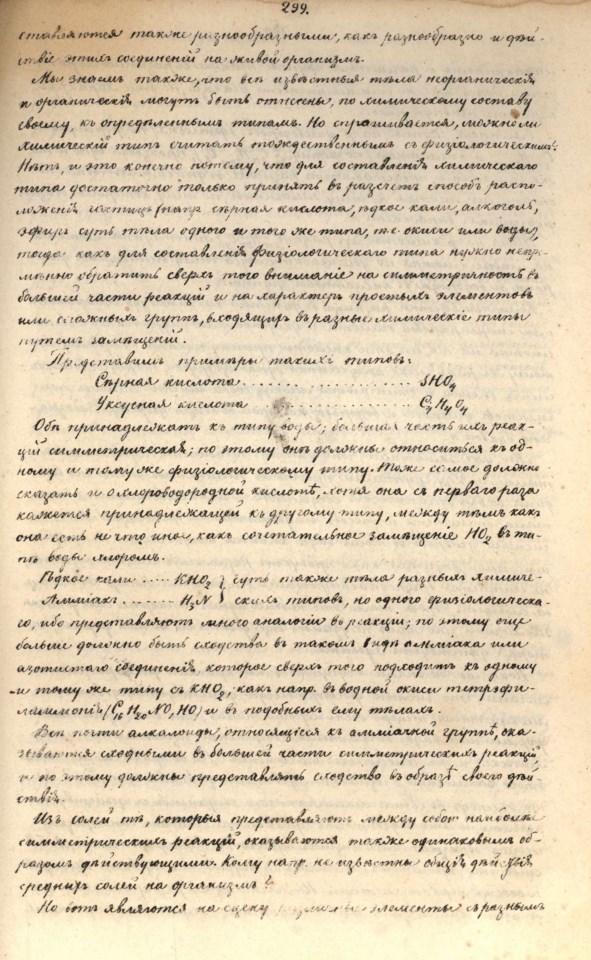 299.
ставляются также разнообразными, какъ разнообразно и дѣй-
ствіе этихъ соединеній на живой организмъ.
Мы знаемъ также, что всѣ извѣстныя тѣла неорганическія
и органическія могутъ быть отнесены, по химическому составу
своему, къ опредѣленнымъ типамъ. Но спрашивается, можно ли
химическій типъ считать тождественнымъ съ физіологическимъ?
Нѣтъ, и это конечно потому, что для составленія химическаго
типа достаточно только принять въ разсчетъ способъ распо-
ложенія частицъ (напр. сѣрная кислота, ѣдкое кали, алкоголь,
эфиръ суть тѣла одного и того же типа, т.е. окиси или воды),
тогда какъ для составленія физіологическаго типа нужно непре-
мѣнно обратить сверхъ того вниманіе на симметричность въ
большей части реакцій и на характеръ простыхъ элементовъ
или сложныхъ группъ, входящихъ въ разные химическіе типы
путемъ замѣщеній.
Представимъ примѣры такихъ типовъ:
Сѣрная кислота . . . . . . . . . . . . . . . . SHO4
Уксусная кислота . . . . . . . . . . . . . . C4H4O4
Обѣ принадлежатъ къ типу воды; большая часть ихъ реак-
цій симметрическая; по этому онѣ должны относиться къ од-
ному и тому же физіологическому типу. Тоже самое должно
сказать и о хлороводородной кислотѣ, хотя она съ перваго раза
кажется принадлежащей къ другому типу, между тѣмъ какъ
она есть не что иное, какъ сочетательное замѣщеніе HO2 въ ти-
пѣ воды хлоромъ.
Ѣдкое кали ..... KHO2 } суть также тѣла разныхъ химиче-
Амміакъ ........ H3N } скихъ типовъ, но одного физіологическа-
го, ибо представляютъ много аналогіи въ реакціи; по этому еще
больше должно быть сходства въ такомъ видѣ амміака или
азотистаго соединенія, которое сверхъ того подходитъ къ одному
и тому же типу съ KHO2, какъ напр. въ водной окиси тетрэфи-
ламмонія (C16H20NO, HO) и въ подобныхъ ему тѣлахъ.
Всѣ почти алкалоиды, относящіеся къ амміачной группѣ, ока-
зываются сходными въ большей части симметрическихъ реакцій,
и по этому должны представлять сходство въ образѣ своего дѣй-
ствія.
Изъ солей тѣ, которыя представляютъ между собою наиболѣе
симметрическихъ реакцій, оказываются также одинаковымъ об-
разомъ дѣйствующими. Кому напр. не извѣстны общія дѣйствія
среднихъ солей на организмъ?
Но вотъ являются на сцену элементы съ разнымъ